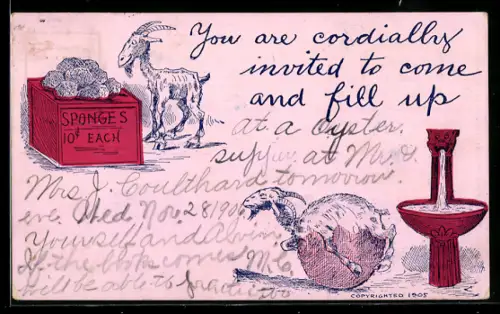 You are cordially
invited to come
and fill up
SPONGES
10¢ EACH
at a oyster
supper at Mr. &
Mrs. J. Coulthard tomorrow
eve. Wed Nov. 28 1906
Yourself and
If the come
will be able to
COPYRIGHTED 1905